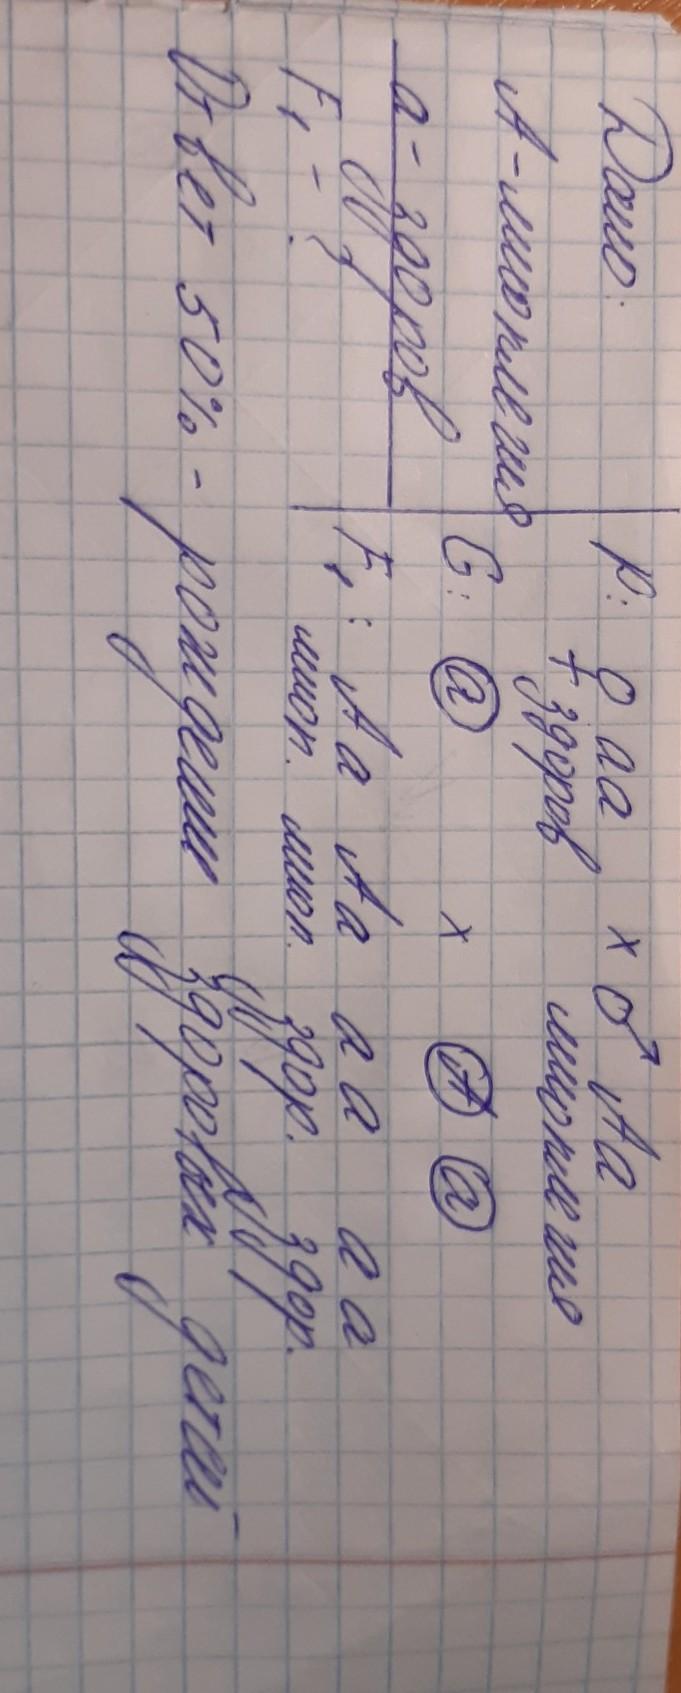 Дано:
А - миопегия
а - здоров
F₁ - ?
P: ♀ аа × ♂ Аа
здоров миопегия
G: а × А а
F₁: Аа Аа аа аа
миоп. миоп. здор. здор.
Ответ 50% - рождения здоровых детей